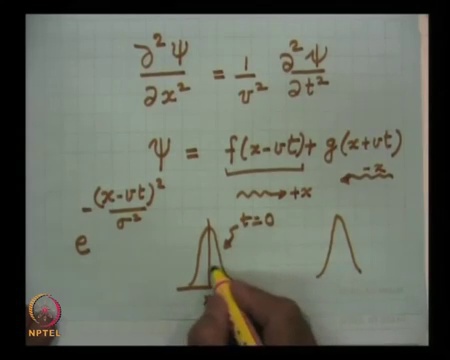 ∂²Ψ/∂x² = 1/v² ∂²Ψ/∂t²
Ψ = f(x-vt) + g(x+vt)
→ +x ← -x
e^-(x-vt)²/σ²
t=0
NPTEL